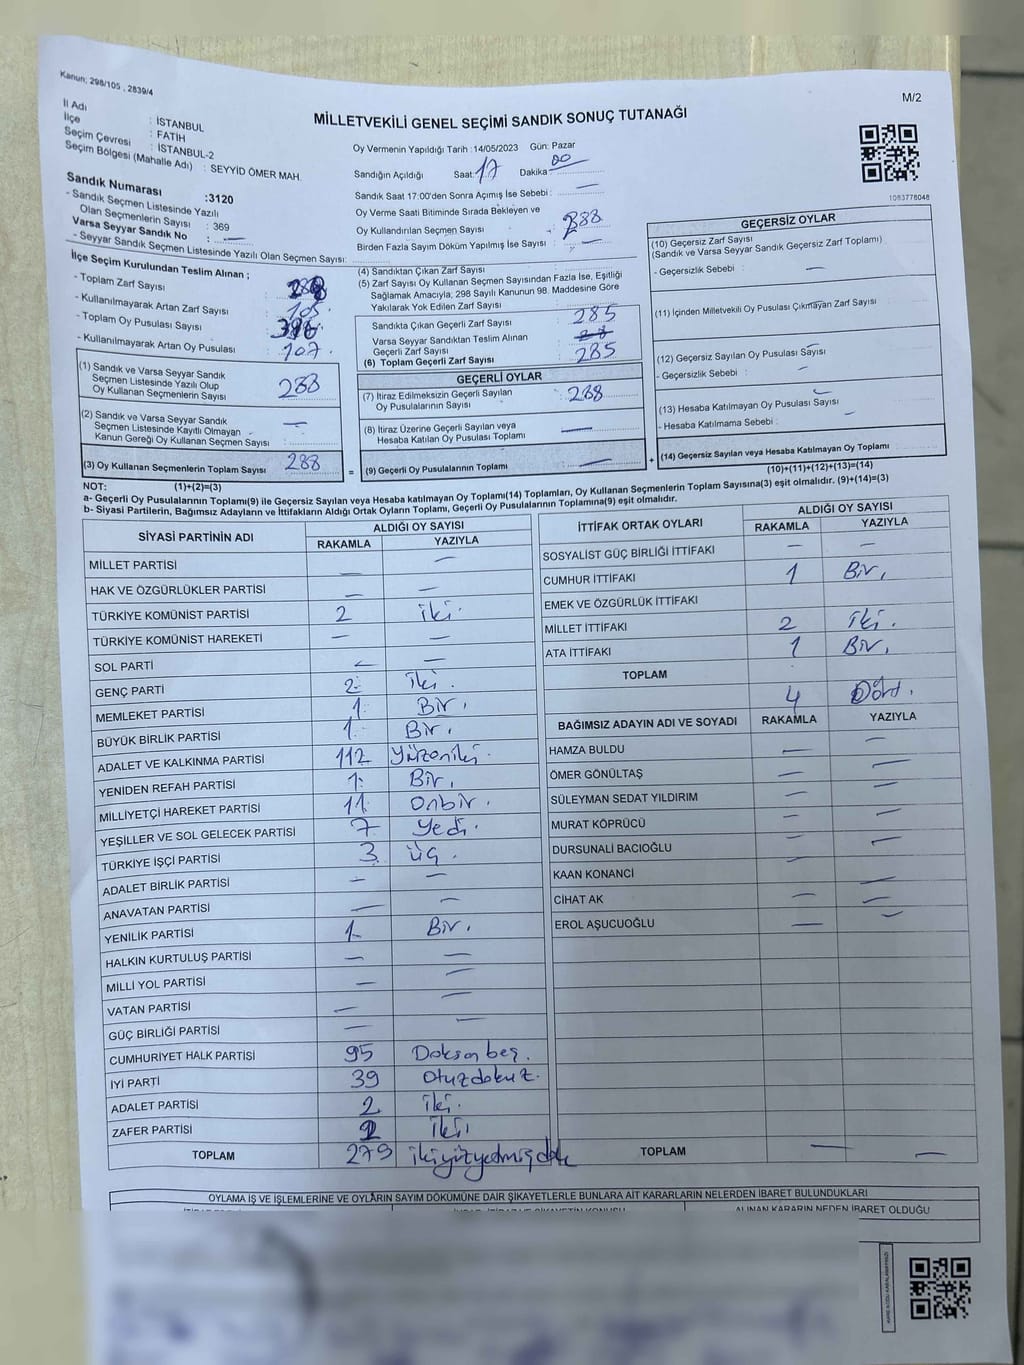 Kanun; 298/105 , 2839/4
M/2
MİLLETVEKİLİ GENEL SEÇİMİ SANDIK SONUÇ TUTANAĞI
İl Adı : İSTANBUL
İlçe : FATİH
Seçim Çevresi : İSTANBUL-2
Seçim Bölgesi (Mahalle Adı) : SEYYİD ÖMER MAH.
Sandık Numarası :3120
- Sandık Seçmen Listesinde Yazılı
Olan Seçmenlerin Sayısı : 369
Varsa Seyyar Sandık No : —
- Seyyar Sandık Seçmen Listesinde Yazılı Olan Seçmen Sayısı:
Oy Vermenin Yapıldığı Tarih :14/05/2023 Gün: Pazar
Sandığın Açıldığı Saat: 17 Dakika 00
Sandık Saat 17:00'den Sonra Açımış İse Sebebi : —
Oy Verme Saati Bitiminde Sırada Bekleyen ve
Oy Kullandırılan Seçmen Sayısı : 288
Birden Fazla Sayım Döküm Yapılmış İse Sayısı : —
1083778048
İlçe Seçim Kurulundan Teslim Alınan ;
- Toplam Zarf Sayısı :
- Kullanılmayarak Artan Zarf Sayısı : 105
- Toplam Oy Pusulası Sayısı :
- Kullanılmayarak Artan Oy Pusulası : 107
(1) Sandık ve Varsa Seyyar Sandık
Seçmen Listesinde Yazılı Olup
Oy Kullanan Seçmenlerin Sayısı : 288
(2) Sandık ve Varsa Seyyar Sandık
Seçmen Listesinde Kayıtlı Olmayan
Kanun Gereği Oy Kullanan Seçmen Sayısı : —
(3) Oy Kullanan Seçmenlerin Toplam Sayısı : 288
(1)+(2)=(3)
(4) Sandıktan Çıkan Zarf Sayısı :
(5) Zarf Sayısı Oy Kullanan Seçmen Sayısından Fazla İse, Eşitliği
Sağlamak Amacıyla; 298 Sayılı Kanunun 98. Maddesine Göre
Yakılarak Yok Edilen Zarf Sayısı :
Sandıkta Çıkan Geçerli Zarf Sayısı : 285
Varsa Seyyar Sandıktan Teslim Alınan
Geçerli Zarf Sayısı :
(6) Toplam Geçerli Zarf Sayısı : 285
GEÇERLİ OYLAR
(7) İtiraz Edilmeksizin Geçerli Sayılan
Oy Pusulalarının Sayısı : 288
(8) İtiraz Üzerine Geçerli Sayılan veya
Hesaba Katılan Oy Pusulası Toplamı : —
= (9) Geçerli Oy Pusulalarının Toplamı : —
GEÇERSİZ OYLAR
(10) Geçersiz Zarf Sayısı
(Sandık ve Varsa Seyyar Sandık Geçersiz Zarf Toplamı)
- Geçersizlik Sebebi : —
(11) İçinden Milletvekili Oy Pusulası Çıkmayan Zarf Sayısı
(12) Geçersiz Sayılan Oy Pusulası Sayısı
- Geçersizlik Sebebi : —
(13) Hesaba Katılmayan Oy Pusulası Sayısı
- Hesaba Katılmama Sebebi : —
+ (14) Geçersiz Sayılan veya Hesaba Katılmayan Oy Toplamı
(10)+(11)+(12)+(13)=(14)
NOT:
a- Geçerli Oy Pusulalarının Toplamı(9) ile Geçersiz Sayılan veya Hesaba katılmayan Oy Toplamı(14) Toplamları, Oy Kullanan Seçmenlerin Toplam Sayısına(3) eşit olmalıdır. (9)+(14)=(3)
b- Siyasi Partilerin, Bağımsız Adayların ve İttifakların Aldığı Ortak Oyların Toplamı, Geçerli Oy Pusulalarının Toplamına(9) eşit olmalıdır.
SİYASİ PARTİNİN ADI ALDIĞI OY SAYISI
RAKAMLA YAZIYLA
MİLLET PARTİSİ — —
HAK VE ÖZGÜRLÜKLER PARTİSİ — —
TÜRKİYE KOMÜNİST PARTİSİ 2 iki.
TÜRKİYE KOMÜNİST HAREKETİ — —
SOL PARTİ — —
GENÇ PARTİ 2 iki.
MEMLEKET PARTİSİ 1 Bir.
BÜYÜK BİRLİK PARTİSİ 1 Bir.
ADALET VE KALKINMA PARTİSİ 112 Yüzoniki.
YENİDEN REFAH PARTİSİ 1 Bir.
MİLLİYETÇİ HAREKET PARTİSİ 11 Onbir.
YEŞİLLER VE SOL GELECEK PARTİSİ 7 Yedi.
TÜRKİYE İŞÇİ PARTİSİ 3 üç.
ADALET BİRLİK PARTİSİ — —
ANAVATAN PARTİSİ — —
YENİLİK PARTİSİ 1 Bir.
HALKIN KURTULUŞ PARTİSİ — —
MİLLİ YOL PARTİSİ — —
VATAN PARTİSİ — —
GÜÇ BİRLİĞİ PARTİSİ — —
CUMHURİYET HALK PARTİSİ 95 Doksan beş.
İYİ PARTİ 39 Otuzdokuz.
ADALET PARTİSİ 2 iki.
ZAFER PARTİSİ 2 iki
TOPLAM 279
İTTİFAK ORTAK OYLARI ALDIĞI OY SAYISI
RAKAMLA YAZIYLA
SOSYALİST GÜÇ BİRLİĞİ İTTİFAKI — —
CUMHUR İTTİFAKI 1 Bir.
EMEK VE ÖZGÜRLÜK İTTİFAKI
MİLLET İTTİFAKI 2 iki.
ATA İTTİFAKI 1 Bir.
TOPLAM 4 Dört.
BAĞIMSIZ ADAYIN ADI VE SOYADI RAKAMLA YAZIYLA
HAMZA BULDU — —
ÖMER GÖNÜLTAŞ — —
SÜLEYMAN SEDAT YILDIRIM — —
MURAT KÖPRÜCÜ — —
DURSUNALİ BACIOĞLU — —
KAAN KONANCİ — —
CİHAT AK — —
EROL AŞUCUOĞLU — —
TOPLAM — —
OYLAMA İŞ VE İŞLEMLERİNE VE OYLARIN SAYIM DÖKÜMÜNE DAİR ŞİKAYETLERLE BUNLARA AİT KARARLARIN NELERDEN İBARET BULUNDUKLARI
ALINAN KARARIN NEDEN İBARET OLDUĞU